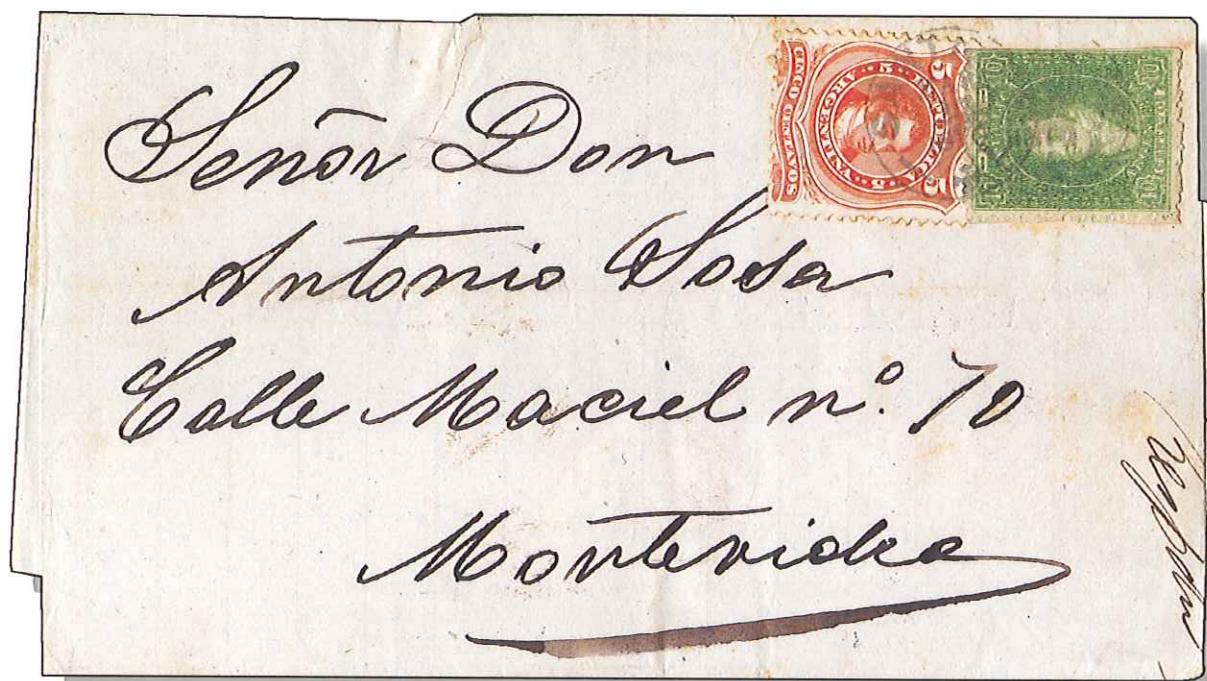 Señor Don
Antonio Sosa
Calle Maciel nº. 70
Montevideo
5 5
REPUBLICA 5 ARGENTINA 5
CINCO CENTAVOS
10 10